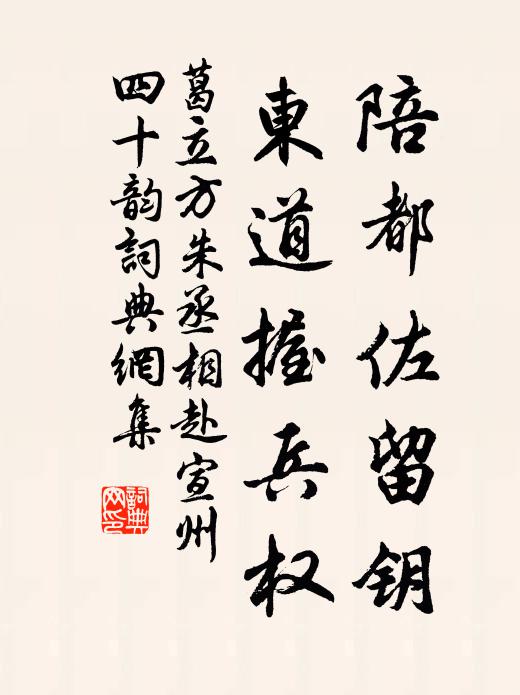 陪都佐留钥
東道握兵权
葛立方朱丞相赴宣州
四十韵詞典網集
詞典
网印